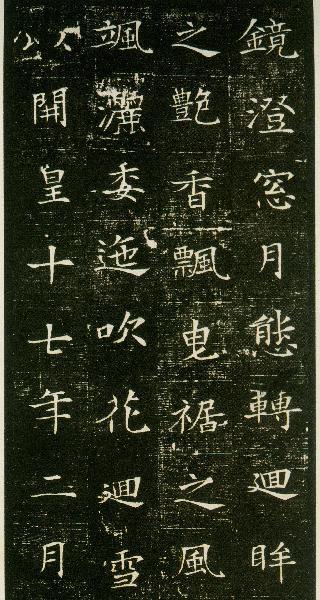 鏡澄窓月態轉迴眸
之艶香飄电裾之風
颯灑委迤吹花迴雪
以開皇十七年二月